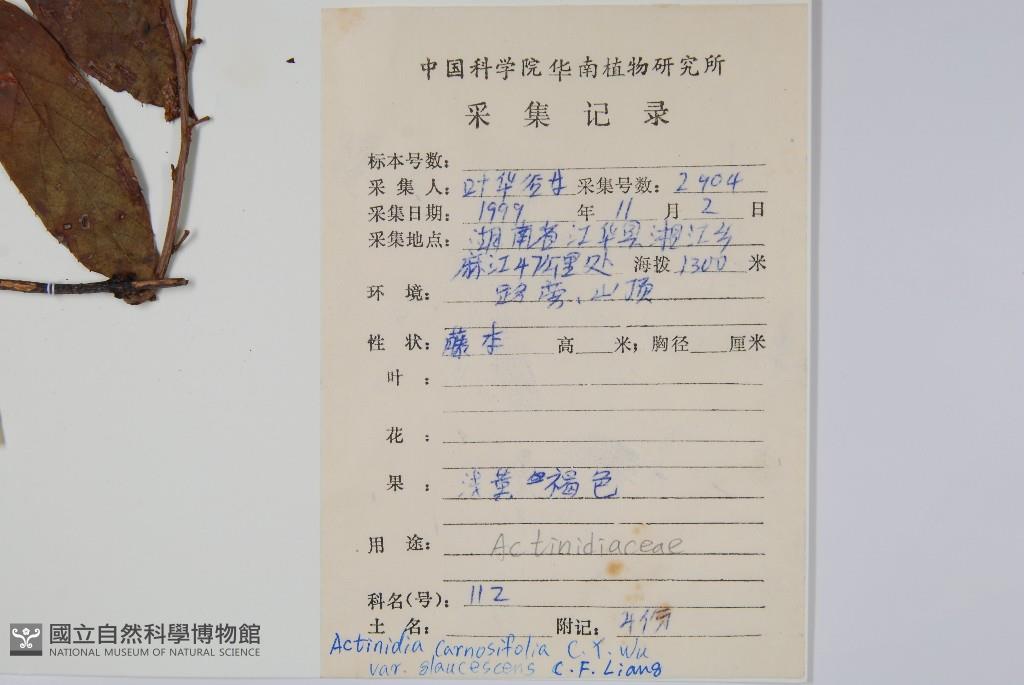 中国科学院华南植物研究所
采集记录
标本号数:
采集人: 叶华谷 采集号数: 2904
采集日期: 1999 年 11 月 2 日
采集地点: 湖南省江华县湘江乡
麻江47公里处 海拨 1300 米
环境: 路旁、山顶
性状: 藤本 高 米; 胸径 厘米
叶:
花:
果: 浅黄 褐色
用途: Actinidiaceae
科名(号): 112
土名: 附记: 4份
Actinidia carnosifolia C. Y. Wu
var. glaucescens C. F. Liang
國立自然科學博物館
NATIONAL MUSEUM OF NATURAL SCIENCE